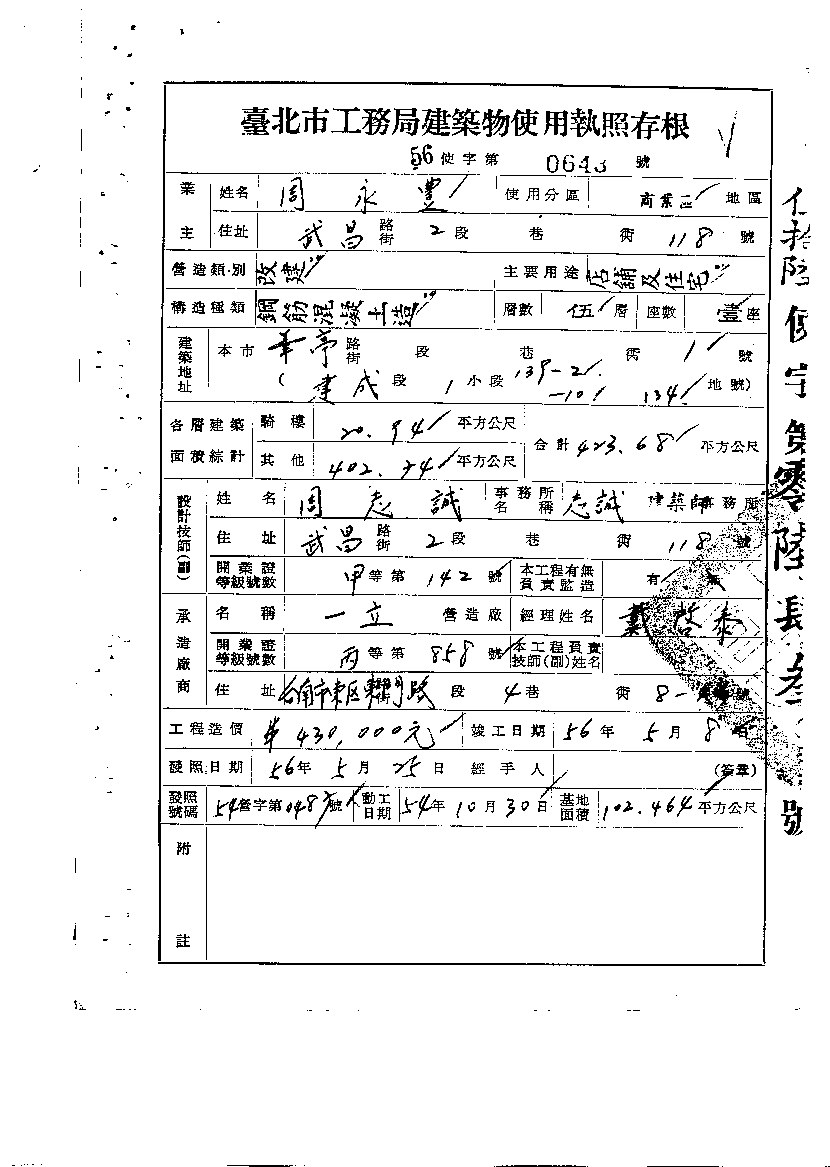 臺北市工務局建築物使用執照存根
56 使字第 0643 號
業主 姓名 周永豐 使用分區 商業區 地區
住址 武昌 路街 2段 巷 衖 118 號
營造類別 改建 主要用途 店舖及住宅
構造種類 鋼筋混凝土造 層數 伍層 座數 壹座
建築地址 本市 華亭 路街 段 巷 衖 1 號
( 建成段 1 小段 139-2 -10 134 地號)
各層建築面積綜計 騎樓 20.94 平方公尺 合計 423.68 平方公尺
其他 402.74 平方公尺
設計技師(副) 姓名 周志誠 事務所名稱 志誠 建築師事務所
住址 武昌 路街 2段 巷 衖 118 號
開業證等級號數 甲等第 142 號 本工程有無負責監造 有 無
承造廠商 名稱 一立 營造廠 經理姓名 戴啓泰
開業證等級號數 丙等第 858 號 本工程負責技師(副)姓名
住址 台南市東區 路街 段 4巷 衖 8- 號
工程造價 430,000元 竣工日期 56年 5月 8日
發照日期 56年 5月 25日 經手人 (簽章)
發照號碼 54營字第 048 號 動工日期 54年 10月 30日 基地面積 102.464 平方公尺
附註
伍拾陸使字第零陸肆叁號